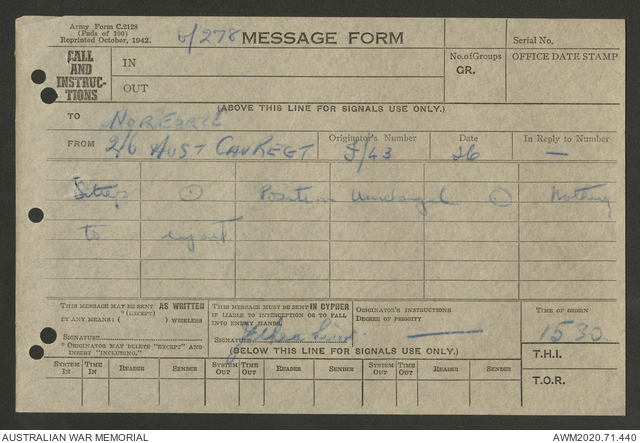 Army Form C.2128
(Pads of 100)
Reprinted October, 1942.
o/278 MESSAGE FORM
Serial No.
CALL AND INSTRUC-TIONS
IN
OUT
No. of Groups
GR.
OFFICE DATE STAMP
(ABOVE THIS LINE FOR SIGNALS USE ONLY.)
TO NORFORCE
FROM 2/6 AUST CAV REGT
Originator's Number
/43
Date
26
In Reply to Number
—
Sitrep ⊙ Position Unchanged ⊙ Nothing
to report
THIS MESSAGE MAY BE SENT AS WRITTEN
BY ANY MEANS: ( (EXCEPT) ) WIRELESS
SIGNATURE
* ORIGINATOR MAY DELETE "EXCEPT" AND INSERT "INCLUDING."
THIS MESSAGE MUST BE SENT IN CYPHER
IF LIABLE TO INTERCEPTION OR TO FALL
INTO ENEMY HANDS.
SIGNATURE
ORIGINATOR'S INSTRUCTIONS
DEGREE OF PRIORITY
TIME OF ORIGIN
1530
(BELOW THIS LINE FOR SIGNALS USE ONLY.)
T.H.I.
T.O.R.
SYSTEM IN TIME IN READER SENDER SYSTEM OUT TIME OUT READER SENDER SYSTEM OUT TIME OUT READER SENDER
AUSTRALIAN WAR MEMORIAL
AWM2020.71.440